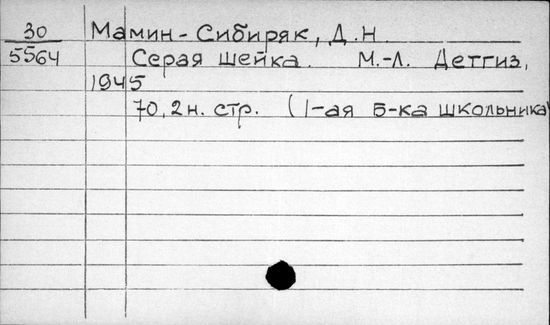 30 Мамин-Сибиряк, Д.Н
5564 Серая шейка. М.-Л. Детгиз,
1945
70, 2 н. стр. (1-ая б-ка школьника)